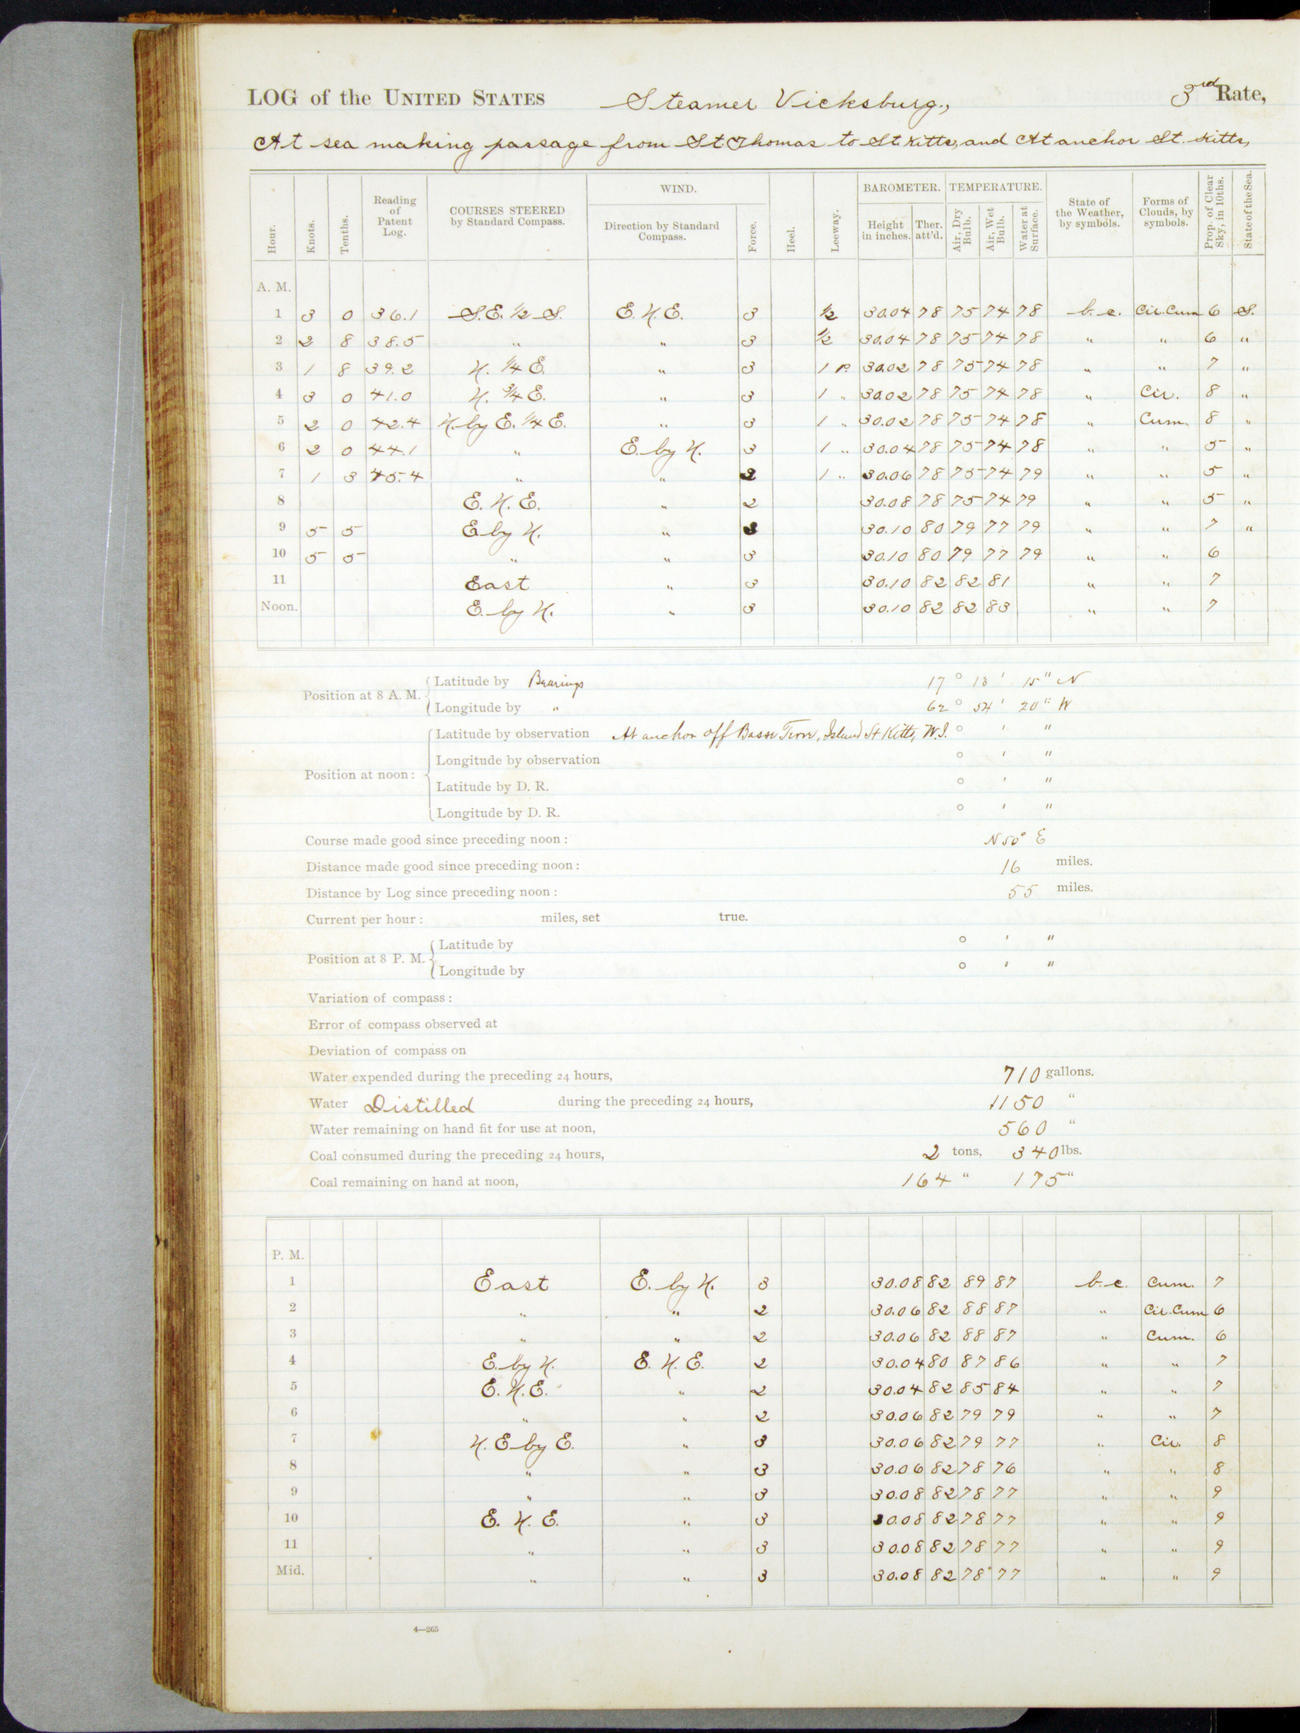 LOG of the UNITED STATES Steamer Vicksburg, 3rd Rate,
At sea making passage from St Thomas to St Kitts, and At anchor St. Kitts,
Hour. Knots. Tenths. Reading of Patent Log. COURSES STEERED by Standard Compass. WIND. Direction by Standard Compass. Force. Heel. Leeway. BAROMETER. Height in inches. Ther. att'd. TEMPERATURE. Air, Dry Bulb. Air, Wet Bulb. Water at Surface. State of the Weather, by symbols. Forms of Clouds, by symbols. Prop. of Clear Sky, in 10ths. State of the Sea.
A. M.
1 3 0 36.1 S.E. 1/2 S. E.N.E. 3 1/2 30.04 78 75 74 78 b.c. Cir.Cum 6 S.
2 2 8 38.5 " " 3 1/2 30.04 78 75 74 78 " " 6 "
3 1 8 39.2 N. 1/4 E. " 3 1 P. 30.02 78 75 74 78 " " 7 "
4 3 0 41.0 N. 3/4 E. " 3 1 " 30.02 78 75 74 78 " Cir. 8 "
5 2 0 42.4 N. by E. 1/4 E. " 3 1 " 30.02 78 75 74 78 " Cum. 8 "
6 2 0 44.1 " E. by N. 3 1 " 30.04 78 75 74 78 " " 5 "
7 1 3 45.4 " " 2 1 " 30.06 78 75 74 79 " " 5 "
8 E. N. E. " 2 30.08 78 75 74 79 " " 5 "
9 5 5 E by N. " 3 30.10 80 79 77 79 " " 7 "
10 5 5 " " 3 30.10 80 79 77 79 " " 6
11 East " 3 30.10 82 82 81 " " 7
Noon. E. by N. " 3 30.10 82 82 83 " " 7
Position at 8 A. M. Latitude by Bearings 17 ° 18 ' 15 " N
Longitude by " 62 ° 54 ' 20 " W
Position at noon: Latitude by observation At anchor off Basse Terre, Island St Kitts, W.I. ° ' "
Longitude by observation ° ' "
Latitude by D. R. ° ' "
Longitude by D. R. ° ' "
Course made good since preceding noon: N 50° E
Distance made good since preceding noon: 16 miles.
Distance by Log since preceding noon: 55 miles.
Current per hour: miles, set true.
Position at 8 P. M. Latitude by ° ' "
Longitude by ° ' "
Variation of compass:
Error of compass observed at
Deviation of compass on
Water expended during the preceding 24 hours, 710 gallons.
Water Distilled during the preceding 24 hours, 1150 "
Water remaining on hand fit for use at noon, 560 "
Coal consumed during the preceding 24 hours, 2 tons, 340 lbs.
Coal remaining on hand at noon, 164 " 175 "
P. M.
1 East E. by N. 3 30.08 82 89 87 b.c. Cum. 7
2 " " 2 30.06 82 88 87 " Cir.Cum 6
3 " " 2 30.06 82 88 87 " Cum. 6
4 E. by N. E. N. E. 2 30.04 80 87 86 " " 7
5 E. N. E. " 2 30.04 82 85 84 " " 7
6 " " 2 30.06 82 79 79 " " 7
7 N. E by E. " 3 30.06 82 79 77 " Cir. 8
8 " " 3 30.06 82 78 76 " " 8
9 " " 3 30.08 82 78 77 " " 9
10 E. N. E. " 3 30.08 82 78 77 " " 9
11 " " 3 30.08 82 78 77 " " 9
Mid. " " 3 30.08 82 78 77 " " 9
4—265